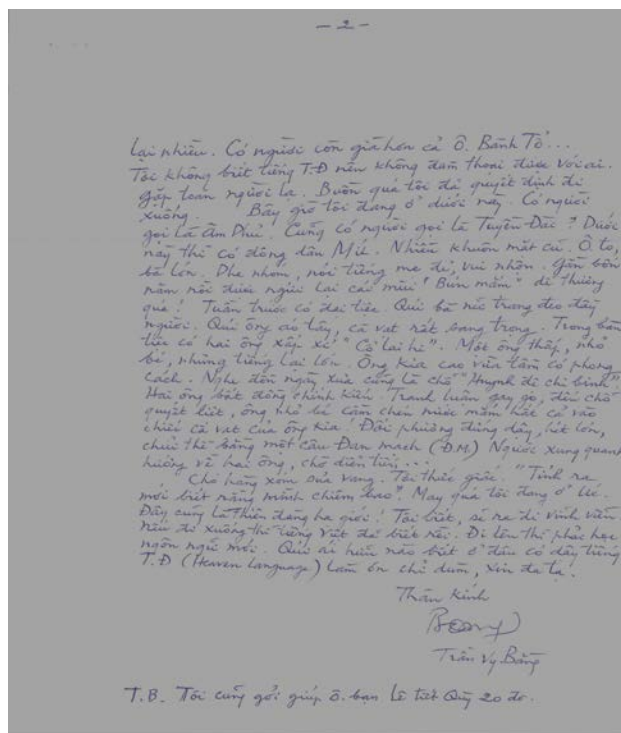 - 2 -
lại nhiều. Có người còn già hơn cả Ô. Bành Tổ...
Tôi không biết tiếng T.Đ nên không đàm thoại được với ai.
Gặp toàn người lạ. Buồn quá tôi đã quyết định đi
xuống. Bây giờ tôi đang ở dưới này. Có người
gọi là Âm Phủ. Cũng có người gọi là Tuyền Đài? Dưới
này thì có đông dân Mít. Nhiều khuôn mặt cũ. Ô to,
bà lớn. Phe nhóm, nói tiếng mẹ đẻ, vui nhộn. Gần bốn
năm rồi được ngửi lại cái mùi "Bún mắm" dễ thương
quá! Tuần trước có đại tiệc. Quí bà nữ trang đeo đầy
người. Quí ông áo tây, cà vạt rất sang trọng. Trong bàn
tiệc có hai ông xấp xỉ "Cổ lai hi". Một ông thấp, nhỏ
bé, nhưng tiếng lại lớn. Ông kia cao vừa tầm có phong
cách. Nghe đồn ngày xưa cũng là chỗ "Huynh đệ chi binh"
Hai ông bất đồng chính kiến. Tranh luận gay go, đến chỗ
quyết liệt, ông nhỏ bé cầm chén nước mắm hất cả vào
chiếc cà vạt của ông kia! Đối phương đứng dậy, hét lớn,
chửi thề bằng một câu Đan mạch (Đ.M.) Người xung quanh
hướng về hai ông, chờ diễn tiến...
Chó hàng xóm sủa vang. Tôi thức giấc. "Tỉnh ra
mới biết rằng mình chiêm bao". May quá tôi đang ở Úc.
Đây cũng là Thiên đàng hạ giới! Tôi biết, sẽ ra đi vĩnh viễn
nếu đi xuống thì tiếng Việt đã biết rồi. Đi lên thì phải học
ngôn ngữ mới. Quí ái hữu nào biết ở đâu có dạy tiếng
T.Đ (Heaven Language) làm ơn chỉ dùm, xin đa tạ.
Thân kính
Trần Vy Bằng
T.B. Tôi cũng gởi giúp ô. bạn Lê tiết Quỹ 20 đo.